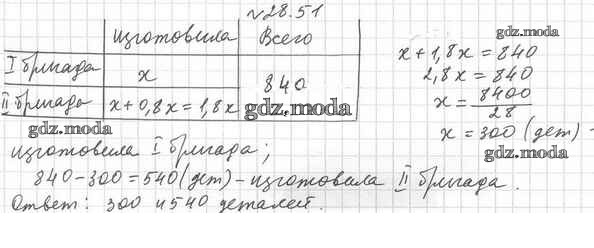 №28.51
изготовила Всего
I бригада x 840
II бригада x+0,8x=1,8x
x+1,8x=840
2,8x=840
x=8400/28
x=300 (дет) -
изготовила I бригада;
840-300=540(дет)-изготовила II бригада.
Ответ: 300 и 540 деталей.
gdz.moda
gdz.moda
gdz.moda
gdz.moda